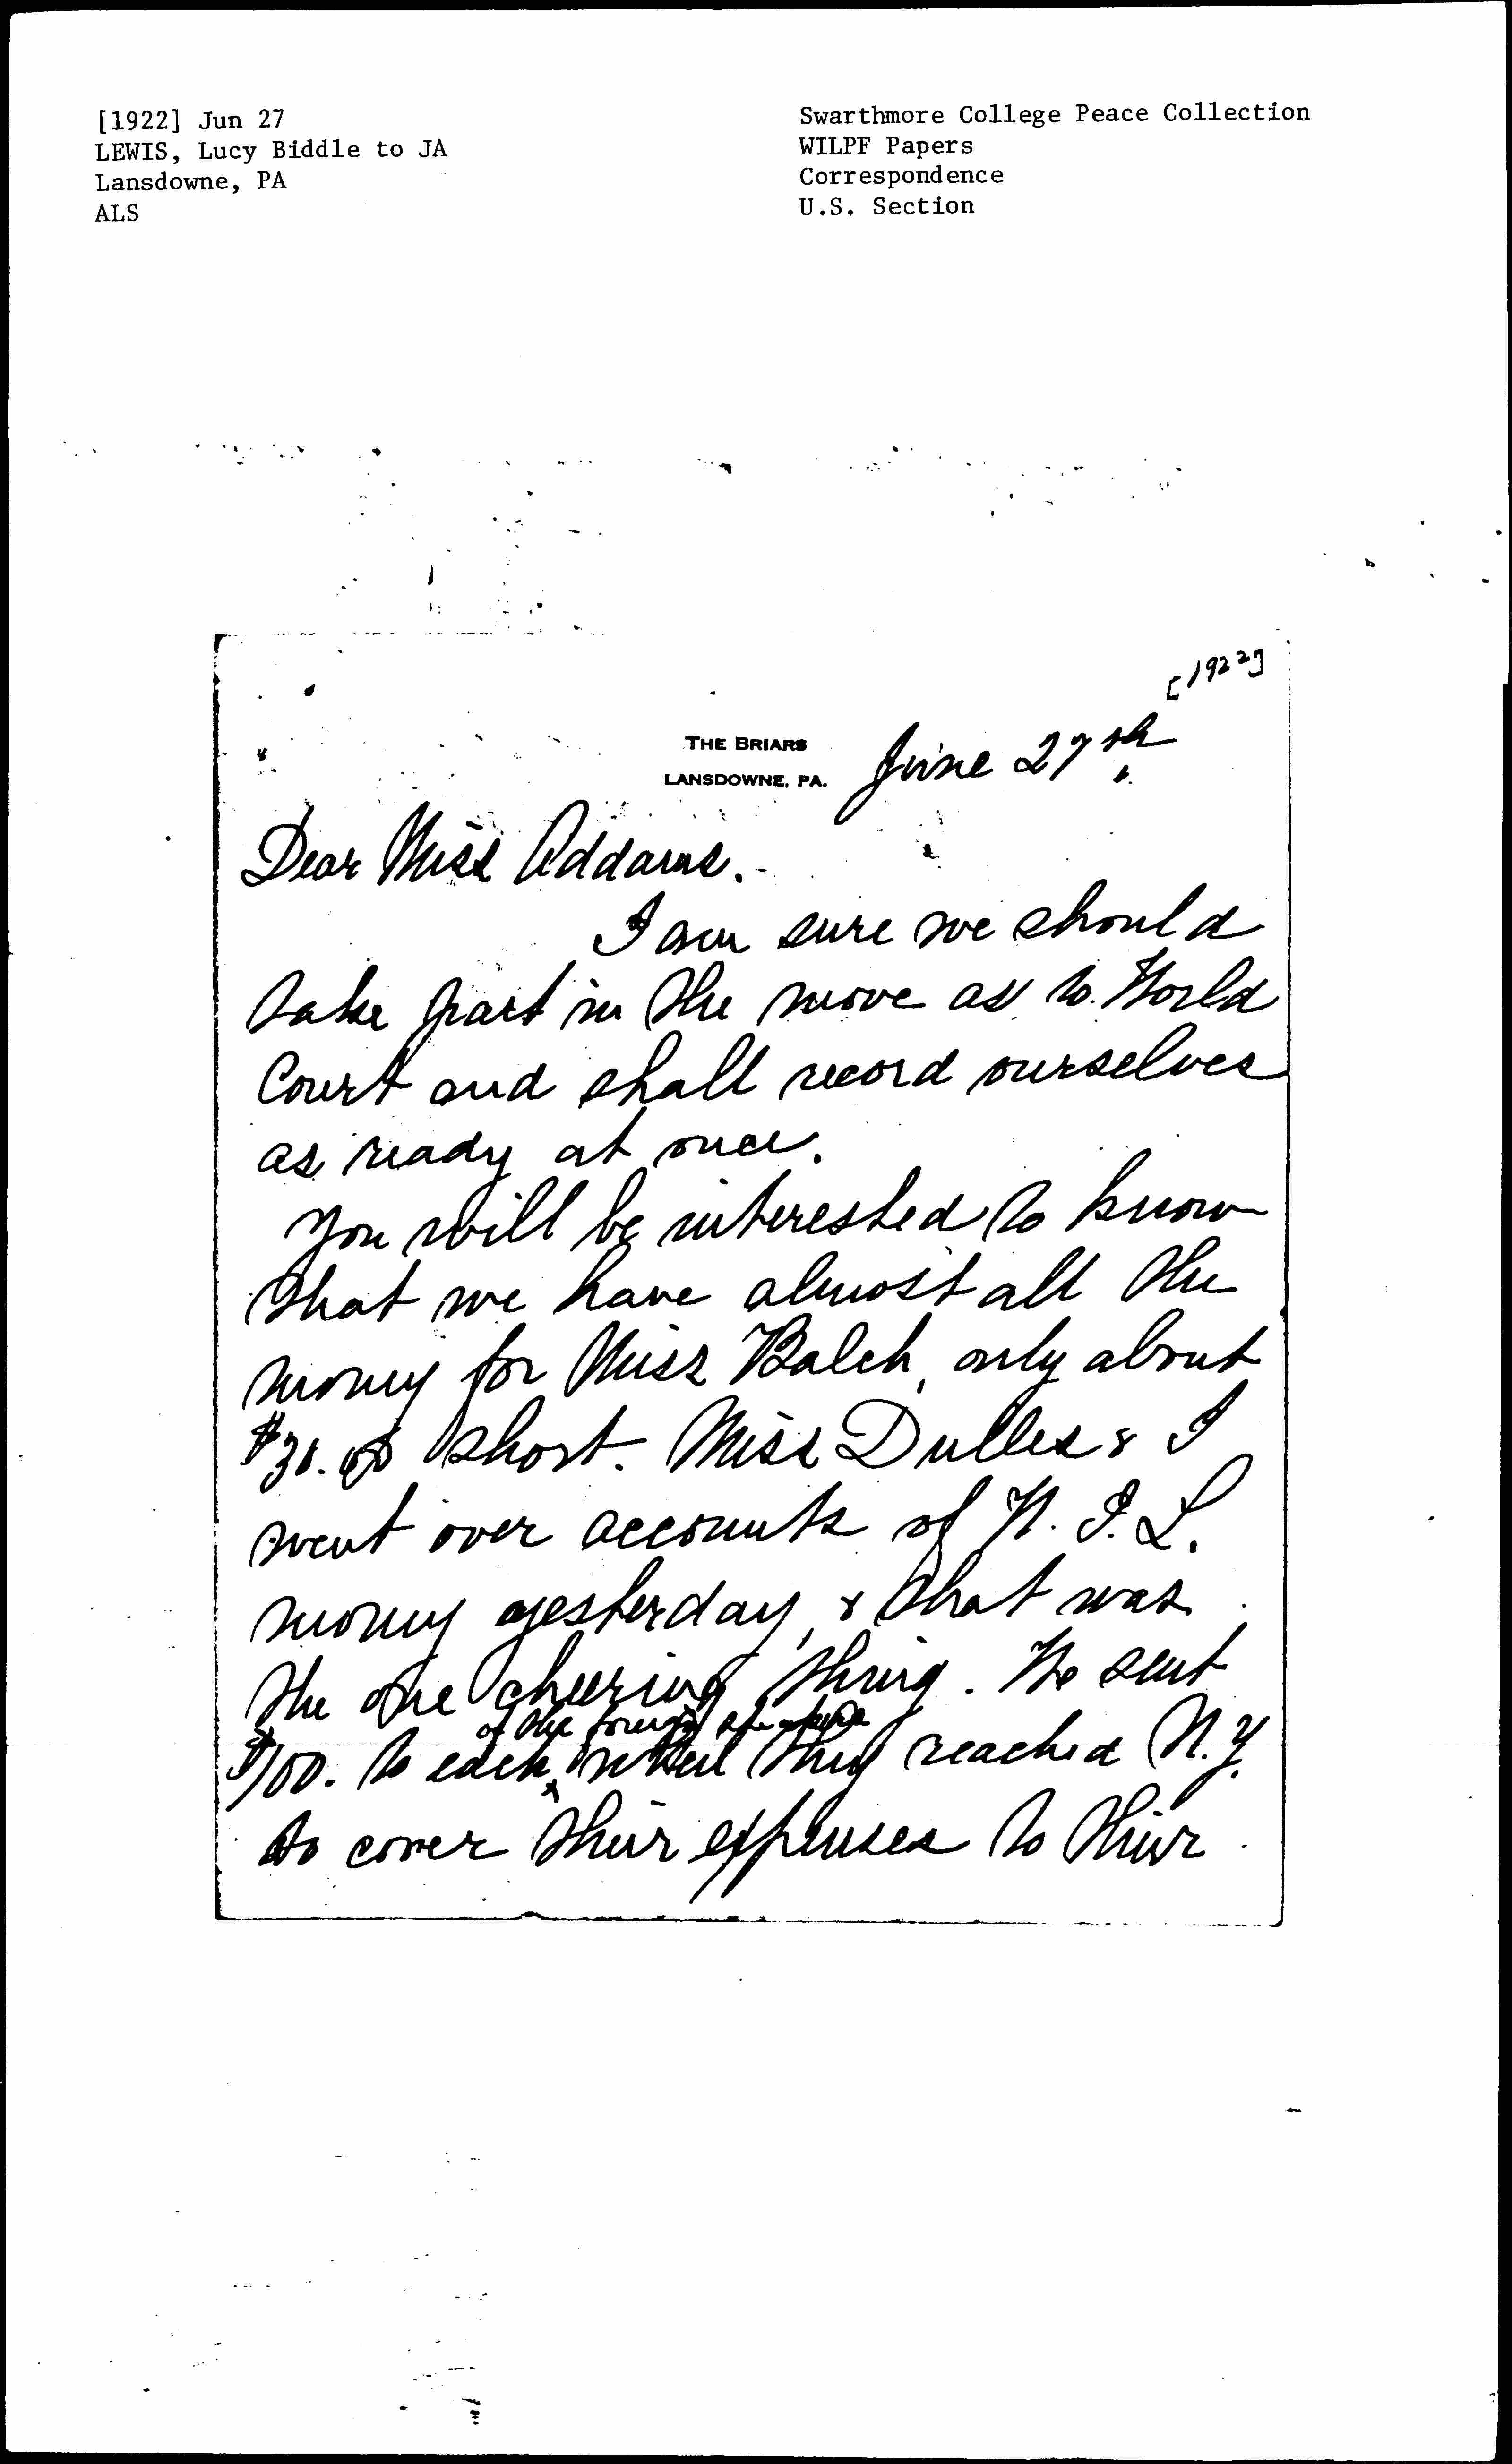 [1922] Jun 27
LEWIS, Lucy Biddle to JA
Lansdowne, PA
ALS
Swarthmore College Peace Collection
WILPF Papers
Correspondence
U.S. Section
[1922]
THE BRIARS
LANSDOWNE, PA.
June 27th.
Dear Miss Addams.-
I am sure we should
take part in the move as to World
Court and shall record ourselves
as ready at once.
You will be interested to know
that we have almost all the
money for Miss Balch, only about
short. Miss Dulles & I
went over accounts of W. I. L.
money yesterday, & that was
the one cheering thing. We sent
of the foreign speakers
$100. to each when they reached N.Y.
to cover their expenses to their